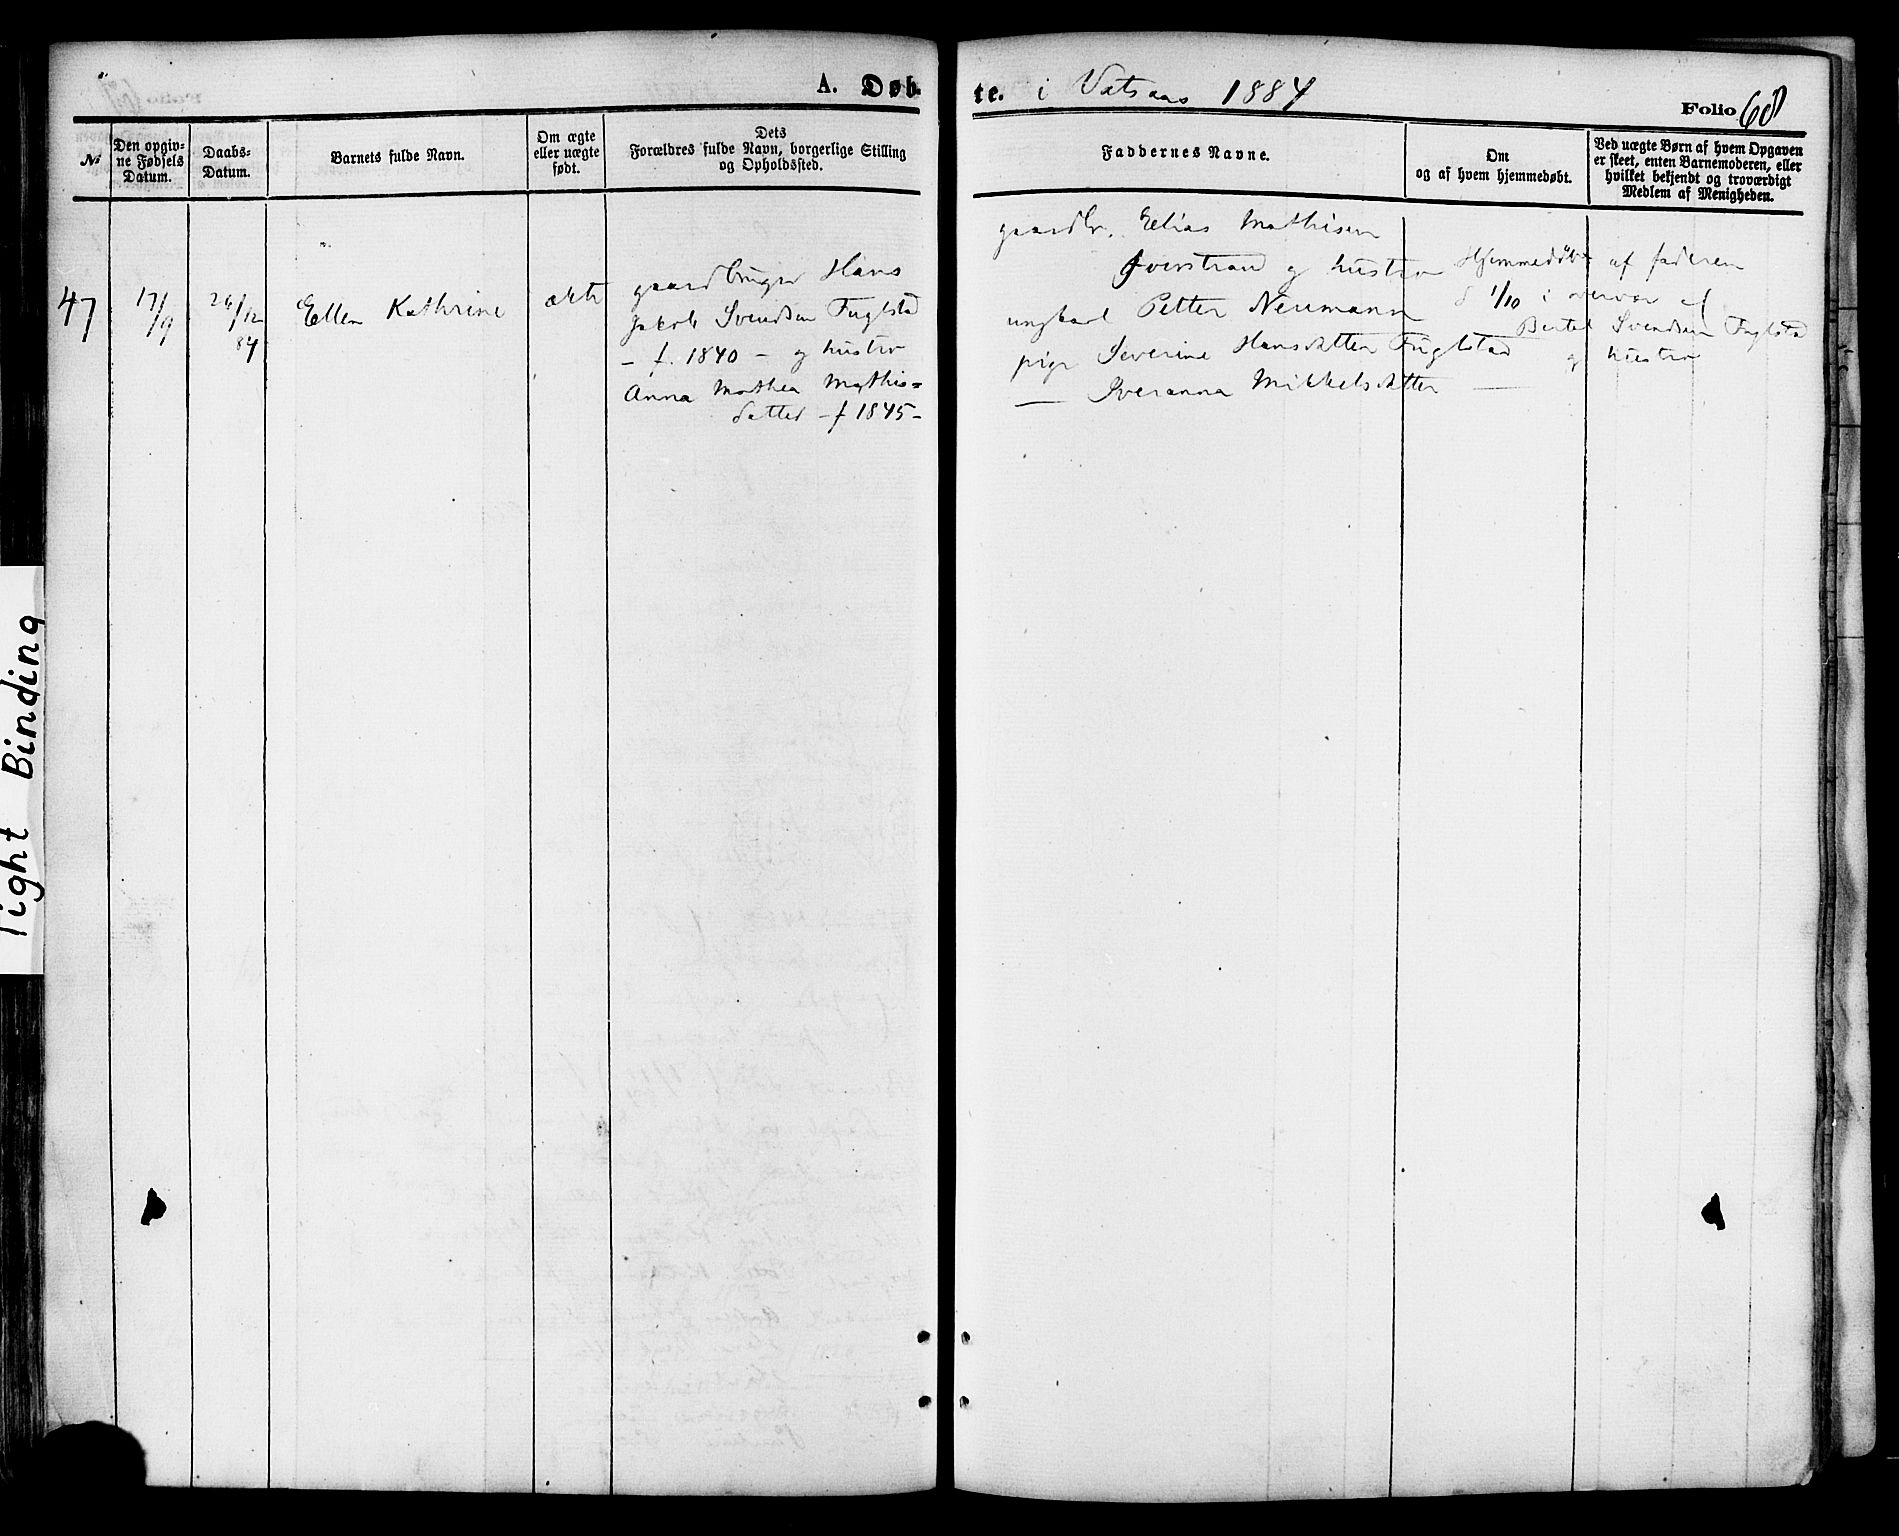 A. Døb-
te. i Vatsaas 1884
Folio 60
No
Den opgiv-
ne Fødsels
Datum.
Daabs-
Datum.
Barnets fulde Navn.
Om ægte
eller uægte
født.
Dets
Forældres fulde Navn, borgerlige Stilling
og Opholdssted.
Faddernes Navne.
Om
og af hvem hjemmedøbt.
Ved uægte Børn af hvem Opgaven
er skeet, enten Barnemoderen, eller
hvilket bekjendt og troværdigt
Medlem af Menigheden.
47
17/9
26/12
84
Ellen Kathrine
ækte
gaardbruger Hans
Jakob Svendsen Fuglstad
- f. 1840 - og hustro
Anna Mathea Mathis=
datter - f 1845 -
gaardbr. Elias Mathisen
Iverstrand og hustro
ungkarl Petter Neumann
pige Severine Hansdatter Fuglstad
— Iveranna Mikkelsdatter —
Hjemmedøbt af faderen
d 1/10 i overvær af
Bertel Svendsen Fuglstad
og hustro
Tight Binding